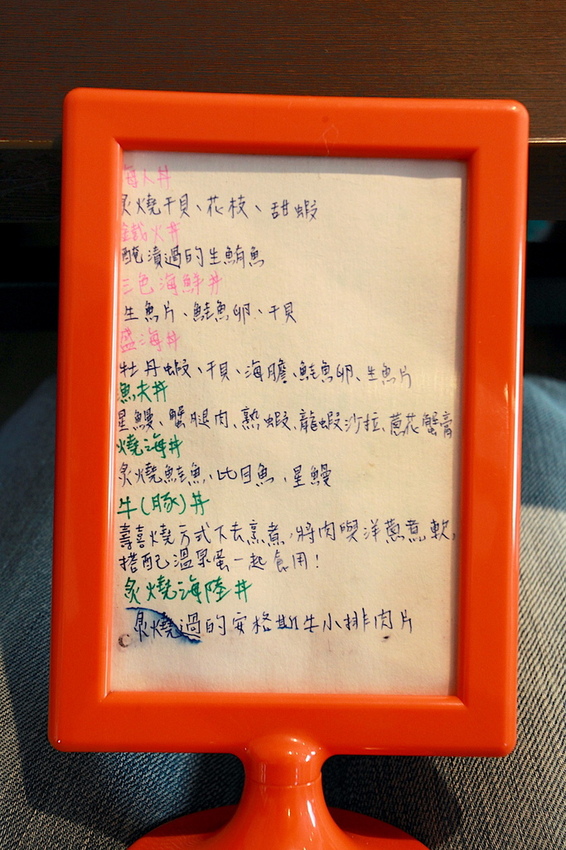 海人丼
炙燒干貝、花枝、甜蝦
鐵火丼
醃漬過的生鮪魚
三色海鮮丼
生魚片、鮭魚卵、干貝
盛海丼
牡丹蝦、干貝、海膽、鮭魚卵、生魚片
魚夫丼
星鰻、蟹腿肉、熟蝦、龍蝦沙拉、蔥花蟹膏
燒海丼
炙燒鮭魚、比目魚、星鰻
牛(豚)丼
壽喜燒方式下去烹煮,將肉與洋蔥煮軟,
搭配溫泉蛋一起食用!
炙燒海陸丼
炙燒過的安格斯牛小排肉片